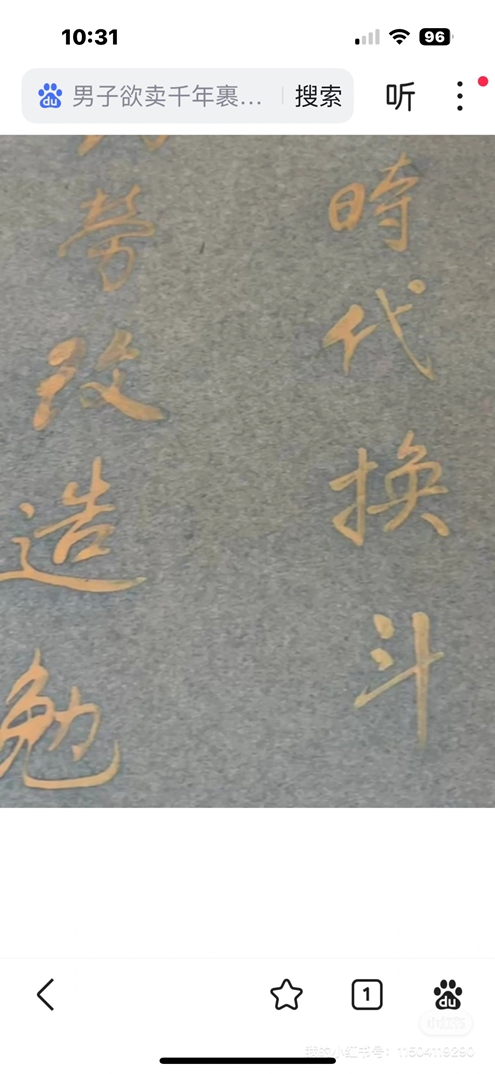 10:31
96
男子欲卖千年裹…
搜索
听
時代换斗
劳改造勉
1
du
小红书
我的小红书号：11504119290